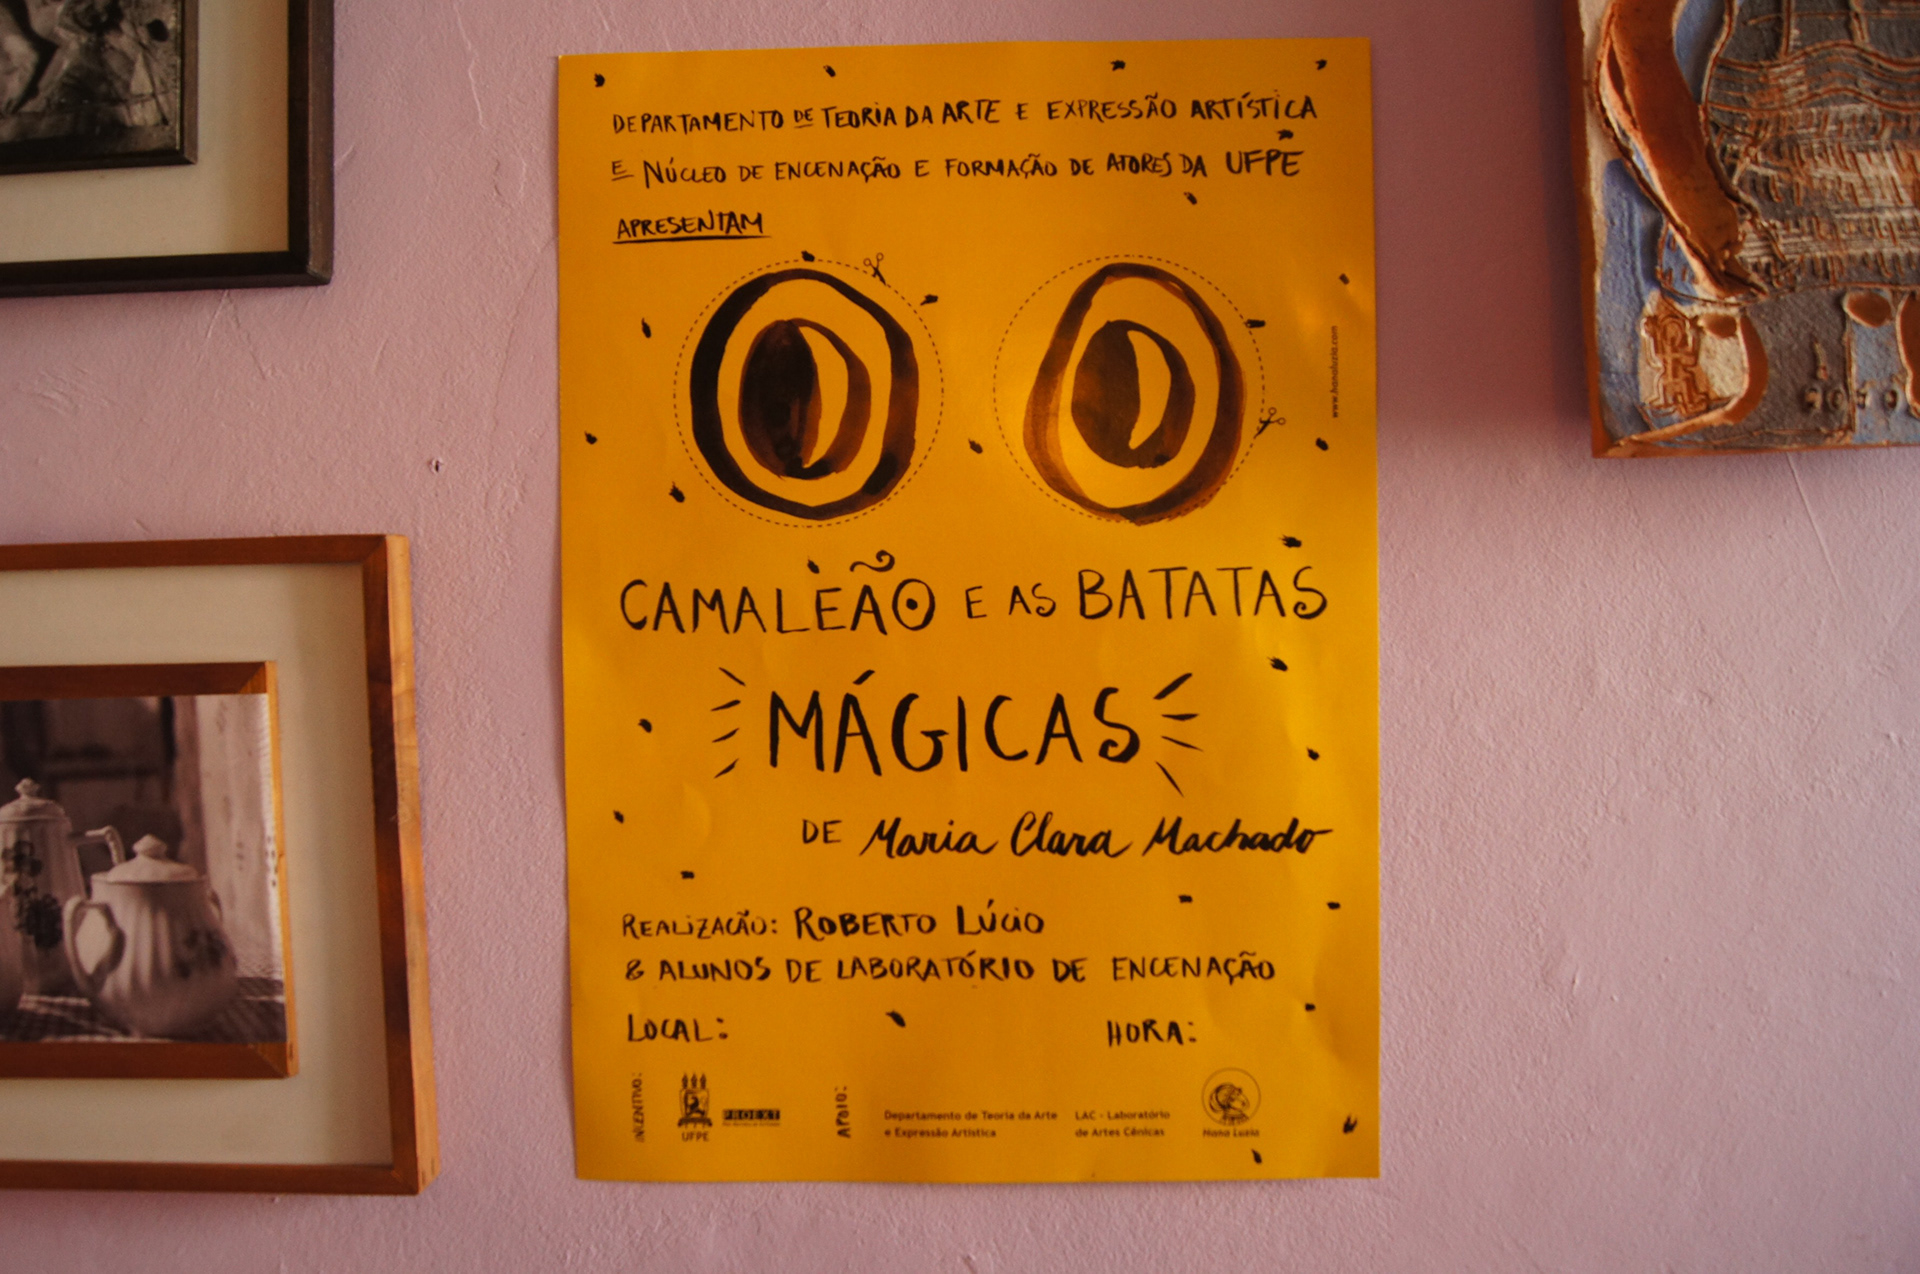 DEPARTAMENTO DE TEORIA DA ARTE E EXPRESSÃO ARTÍSTICA
E NÚCLEO DE ENCENAÇÃO E FORMAÇÃO DE ATORES DA UFPE
APRESENTAM
www.hanaluzia.com
CAMALEÃO E AS BATATAS
MÁGICAS
DE Maria Clara Machado
REALIZAÇÃO: ROBERTO LÚCIO
& ALUNOS DE LABORATÓRIO DE ENCENAÇÃO
LOCAL: HORA:
INCENTIVO:
UFPE
PROEXT
APOIO:
Departamento de Teoria da Arte
e Expressão Artística
LAC - Laboratório
de Artes Cênicas
Hana Luzia